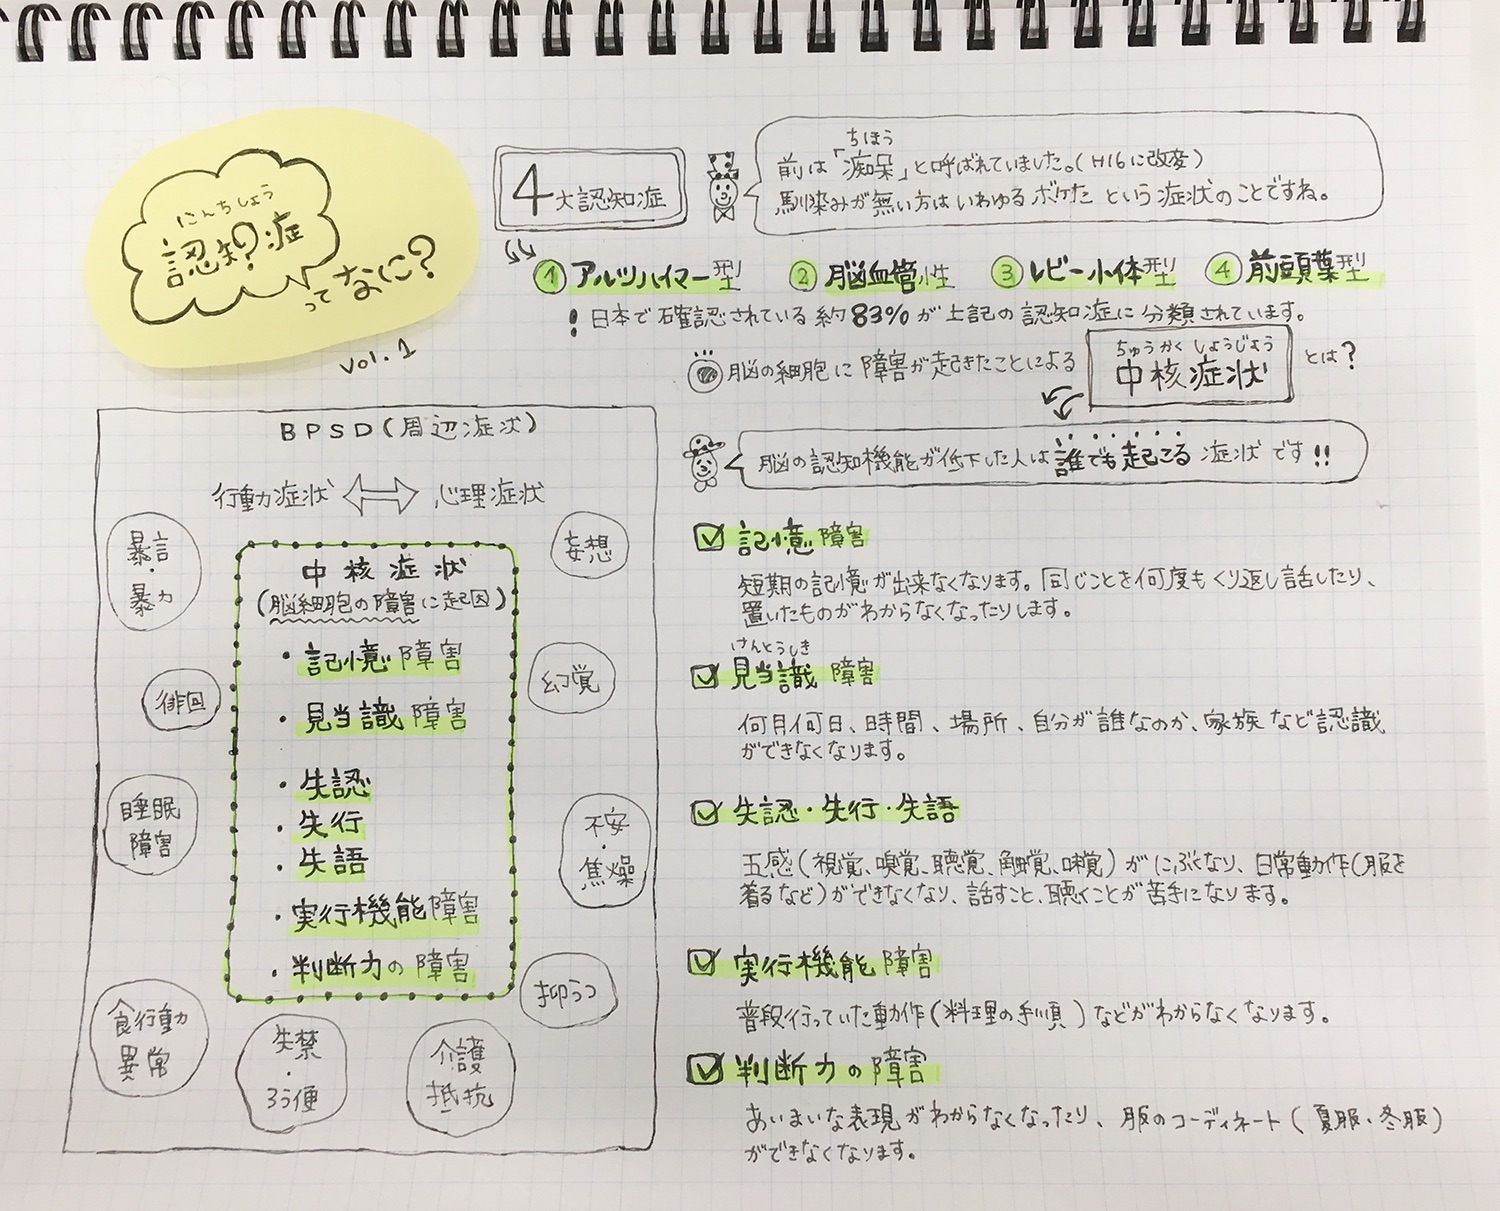 にんちしょう
認知?症
って なに?
vol.1
4大認知症
ちほう
前は「痴呆」と呼ばれていました。(H16に改変)
馴染みが無い方はいわゆるボケた という症状のことですね。
① アルツハイマー型 ② 脳血管性 ③ レビー小体型 ④ 前頭葉型
! 日本で確認されている約83%が上記の認知症に分類されています。
脳の細胞に障害が起きたことによる
ちゅうかくしょうじょう
中核症状 とは?
脳の認知機能が低下した人は誰でも起こる 症状です!!
BPSD(周辺症状)
行動症状 ⇔ 心理症状
暴言・暴力
徘徊
睡眠障害
食行動異常
失禁・ろう便
介護抵抗
抑うつ
不安・焦燥
幻覚
妄想
中核症状
(脳細胞の障害に起因)
・記憶障害
・見当識障害
・失認
・失行
・失語
・実行機能障害
・判断力の障害
☑ 記憶障害
短期の記憶が出来なくなります。同じことを何度もくり返し話したり、
置いたものがわからなくなったりします。
けんとうしき
☑ 見当識障害
何月何日、時間、場所、自分が誰なのか、家族など認識
ができなくなります。
☑ 失認・失行・失語
五感(視覚、嗅覚、聴覚、触覚、味覚)がにぶくなり、日常動作(服を
着るなど)ができなくなり、話すこと、聴くことが苦手になります。
☑ 実行機能障害
普段行っていた動作(料理の手順)などがわからなくなります。
☑ 判断力の障害
あいまいな表現がわからなくなったり、服のコーディネート(夏服・冬服)
ができなくなります。